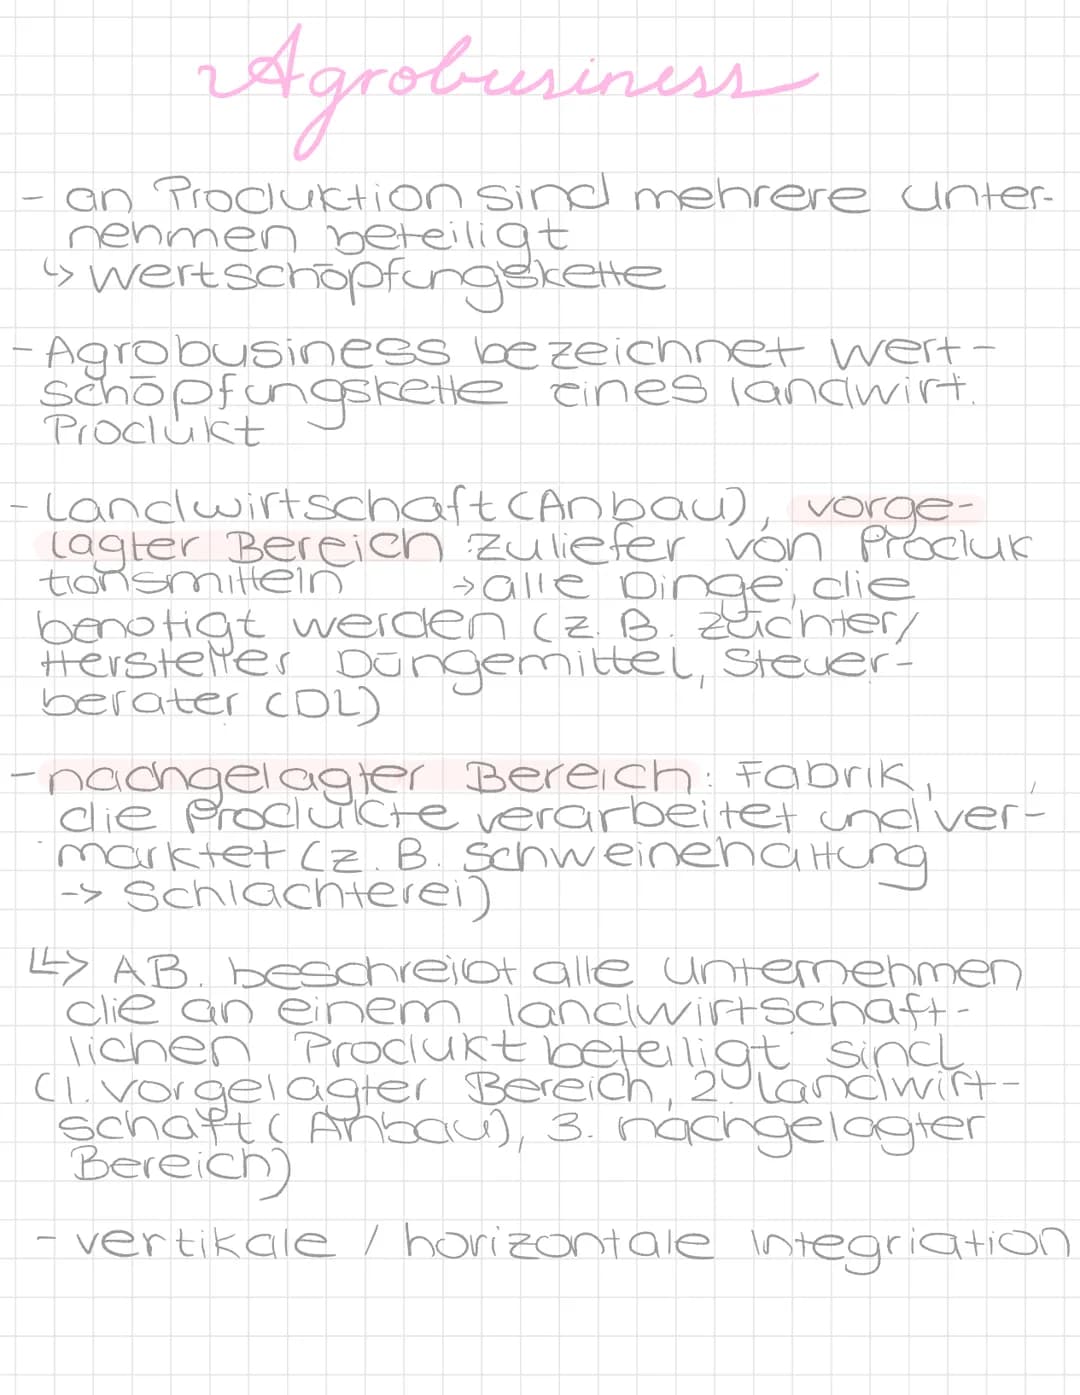 Agrobusiness
- an Produktion sind mehrere Unter-
nehmen beteiligt
↳ Wertschöpfungskette
- Agrobusiness bezeichnet Wert-
schöpfungskette eines landwirt.
Produkt
- Landwirtschaft (Anbau), vorge-
lagter Bereich: Zuliefer von Produk
tionsmitteln → alle Dinge, die
benötigt werden (z. B. Züchter/
Hersteller Düngemittel, Steuer-
berater (DL)
- nachgelagter Bereich: Fabrik,
die Produkte verarbeitet und ver-
marktet (z. B. Schweinehaltung
-> Schlachterei)
↳> AB. beschreibt alle Unternehmen
die an einem landwirtschaft-
lichen Produkt beteiligt sind
(1. vorgelagter Bereich, 2. Landwirt-
schaft (Anbau), 3. nachgelagter
Bereich)
- vertikale / horizontale Integriation